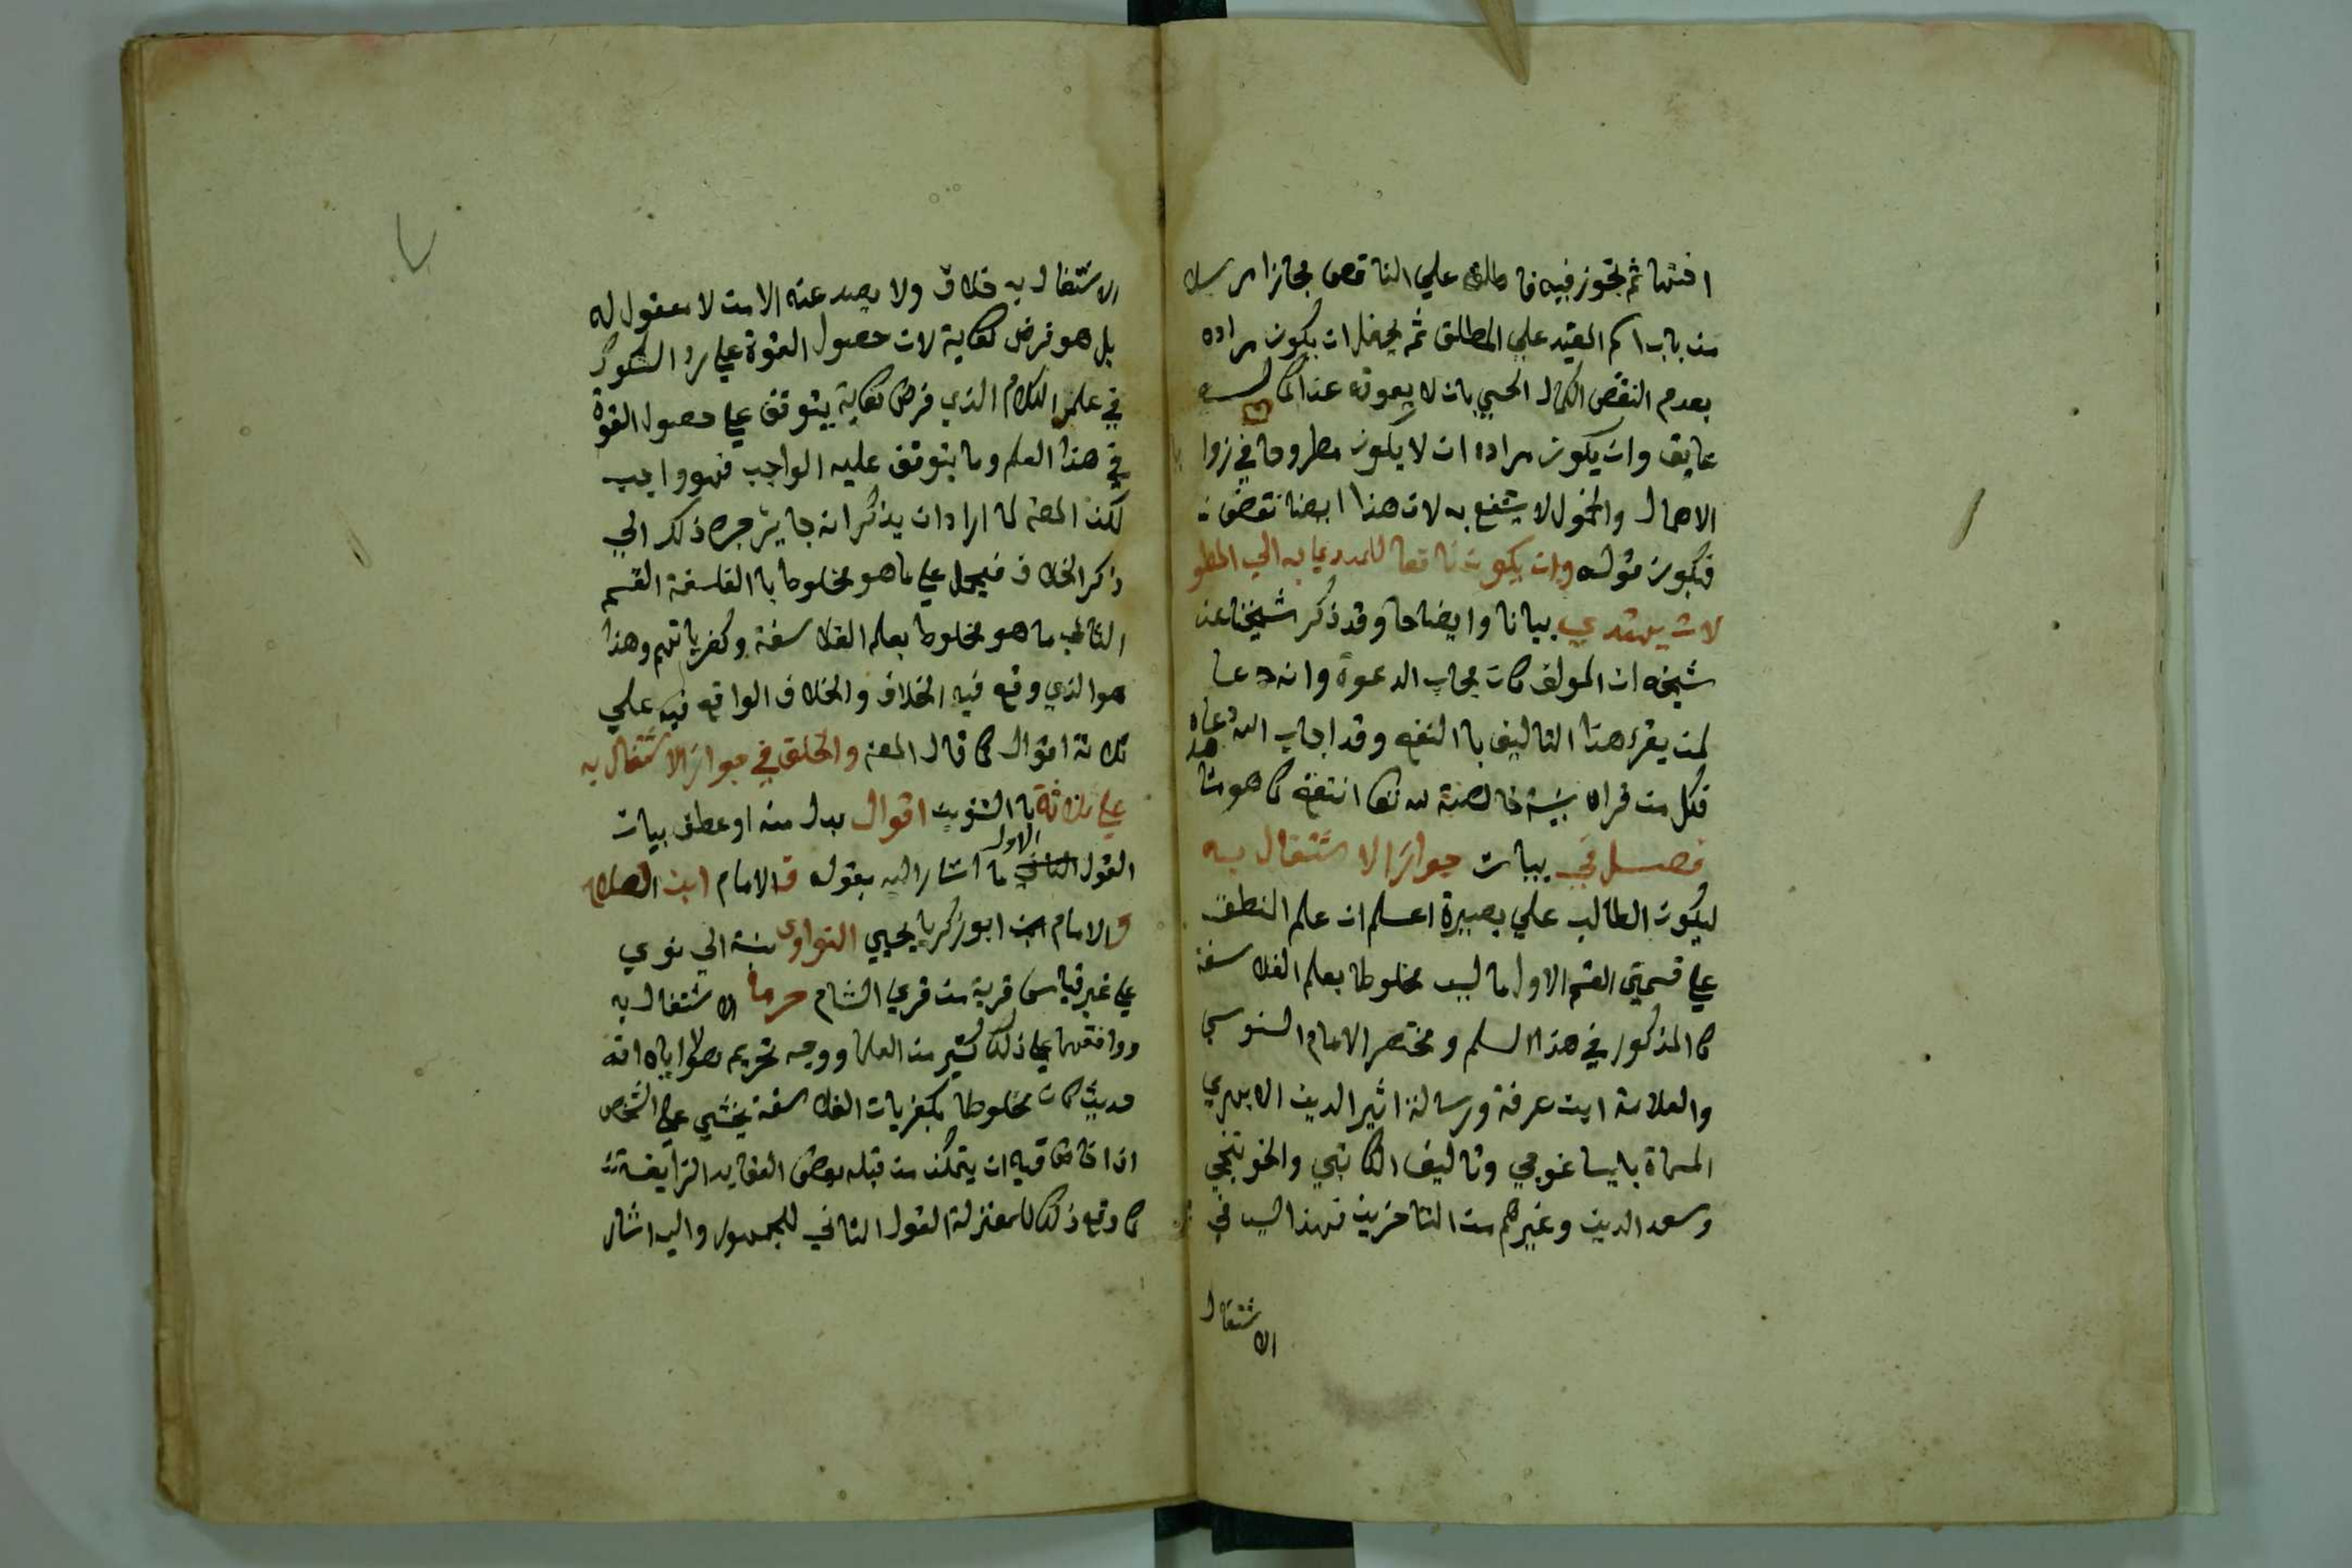 ثم تجوز فيه فاطلق علي الناقص مجازا مرسلا
من باب اسم المقيد علي المطلق ثم يحتمل ان يكون مراده
بعدم النقص الكمال الحسي بان لا يعوقه عن اكماله
عايق وان يكون مراده ان لا يكون مطروحا في زوايا
الاهمال والخمول لا ينتفع به لان هذا ايضا نقص
فيكون قوله وان يكون نافعا للمبتدي به الي المطو
لات يهتدي بيانا وايضاحا وقد ذكر شيخنا عن
شيخه ان المولف كان مجاب الدعوة وانه دعا
لمن يقرء هذا التاليف باالنفع وقد اجاب الله دعاه
فكل من قراه بنية خالصة لله تعا انتفع كما هو مشا هد
فصل في بيان جواز الاشتغال به
ليكون الطالب علي بصيرة اعلم ان علم المنطق
علي قسمين القسم الاول ما ليس مخلوطا بعلم الفلاسفة
كاالمذكور في هذا السلم ومختصر الامام السنوسي
والعلامة ابن عرفة ورسالة اثير الدين الابهري
المسماة بايساغوجي وتاليف الكاتبي والخونجي
وسعد الدين وغيرهم من المتاخرين فهذا ليس في
الاشتغال
الاشتغال به خلاف ولا يصد عنه الا من لا معقول له
بل هو فرض كفاية لان حصول القوة علي رد الشكوك
في علم الكلام الذي فرض كفاية يتوقف علي حصول القوة
في هذا العلم وما يتوقف عليه الواجب فهو واجب
لكن المصنف لما اراد ان يذكر انه جايز جره ذلك الي
ذكر الخلاف فيحمل علي ما هو مخلوط باالفلسفة القسم
الثاني ما هو مخلوط بعلم الفلاسفة وكفرياتهم وهذا
هو الذي وقع فيه الخلاف والخلاف الواقع فيه علي
ثلاثة اقوال كما قال المصنف والخلف في جواز الاشتغال به
علي ثلاثة باالتنوين اقوال بدل منه او عطف بيان
القول الثاني الاول ما اشار اليه بقوله فالامام ابن الصلاح
والامام ابن ابو زكريا يحيي النواوي نسبة الي نوي
علي غير قياس قرية من قري الشام حرما الاشتغال به
ووافقهما علي ذلك كثير من العلما ووجه تحريم هؤلا اياه انه
حديث كان مخلوطا بكفريات الفلاسفة يخشي علي الشخص
اذا خاض فيه ان يتمكن من قبله بعض العقايد الزايفة
كما وقع ذلك للمعتزلة القول الثاني للجمهور واليه اشار